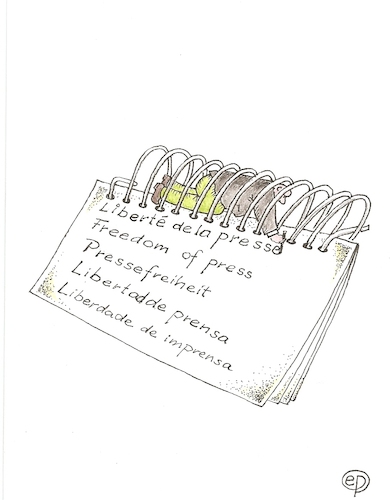 Liberté de la presse
Freedom of press
Pressefreiheit
Libertad de prensa
Liberdade de imprensa
ep